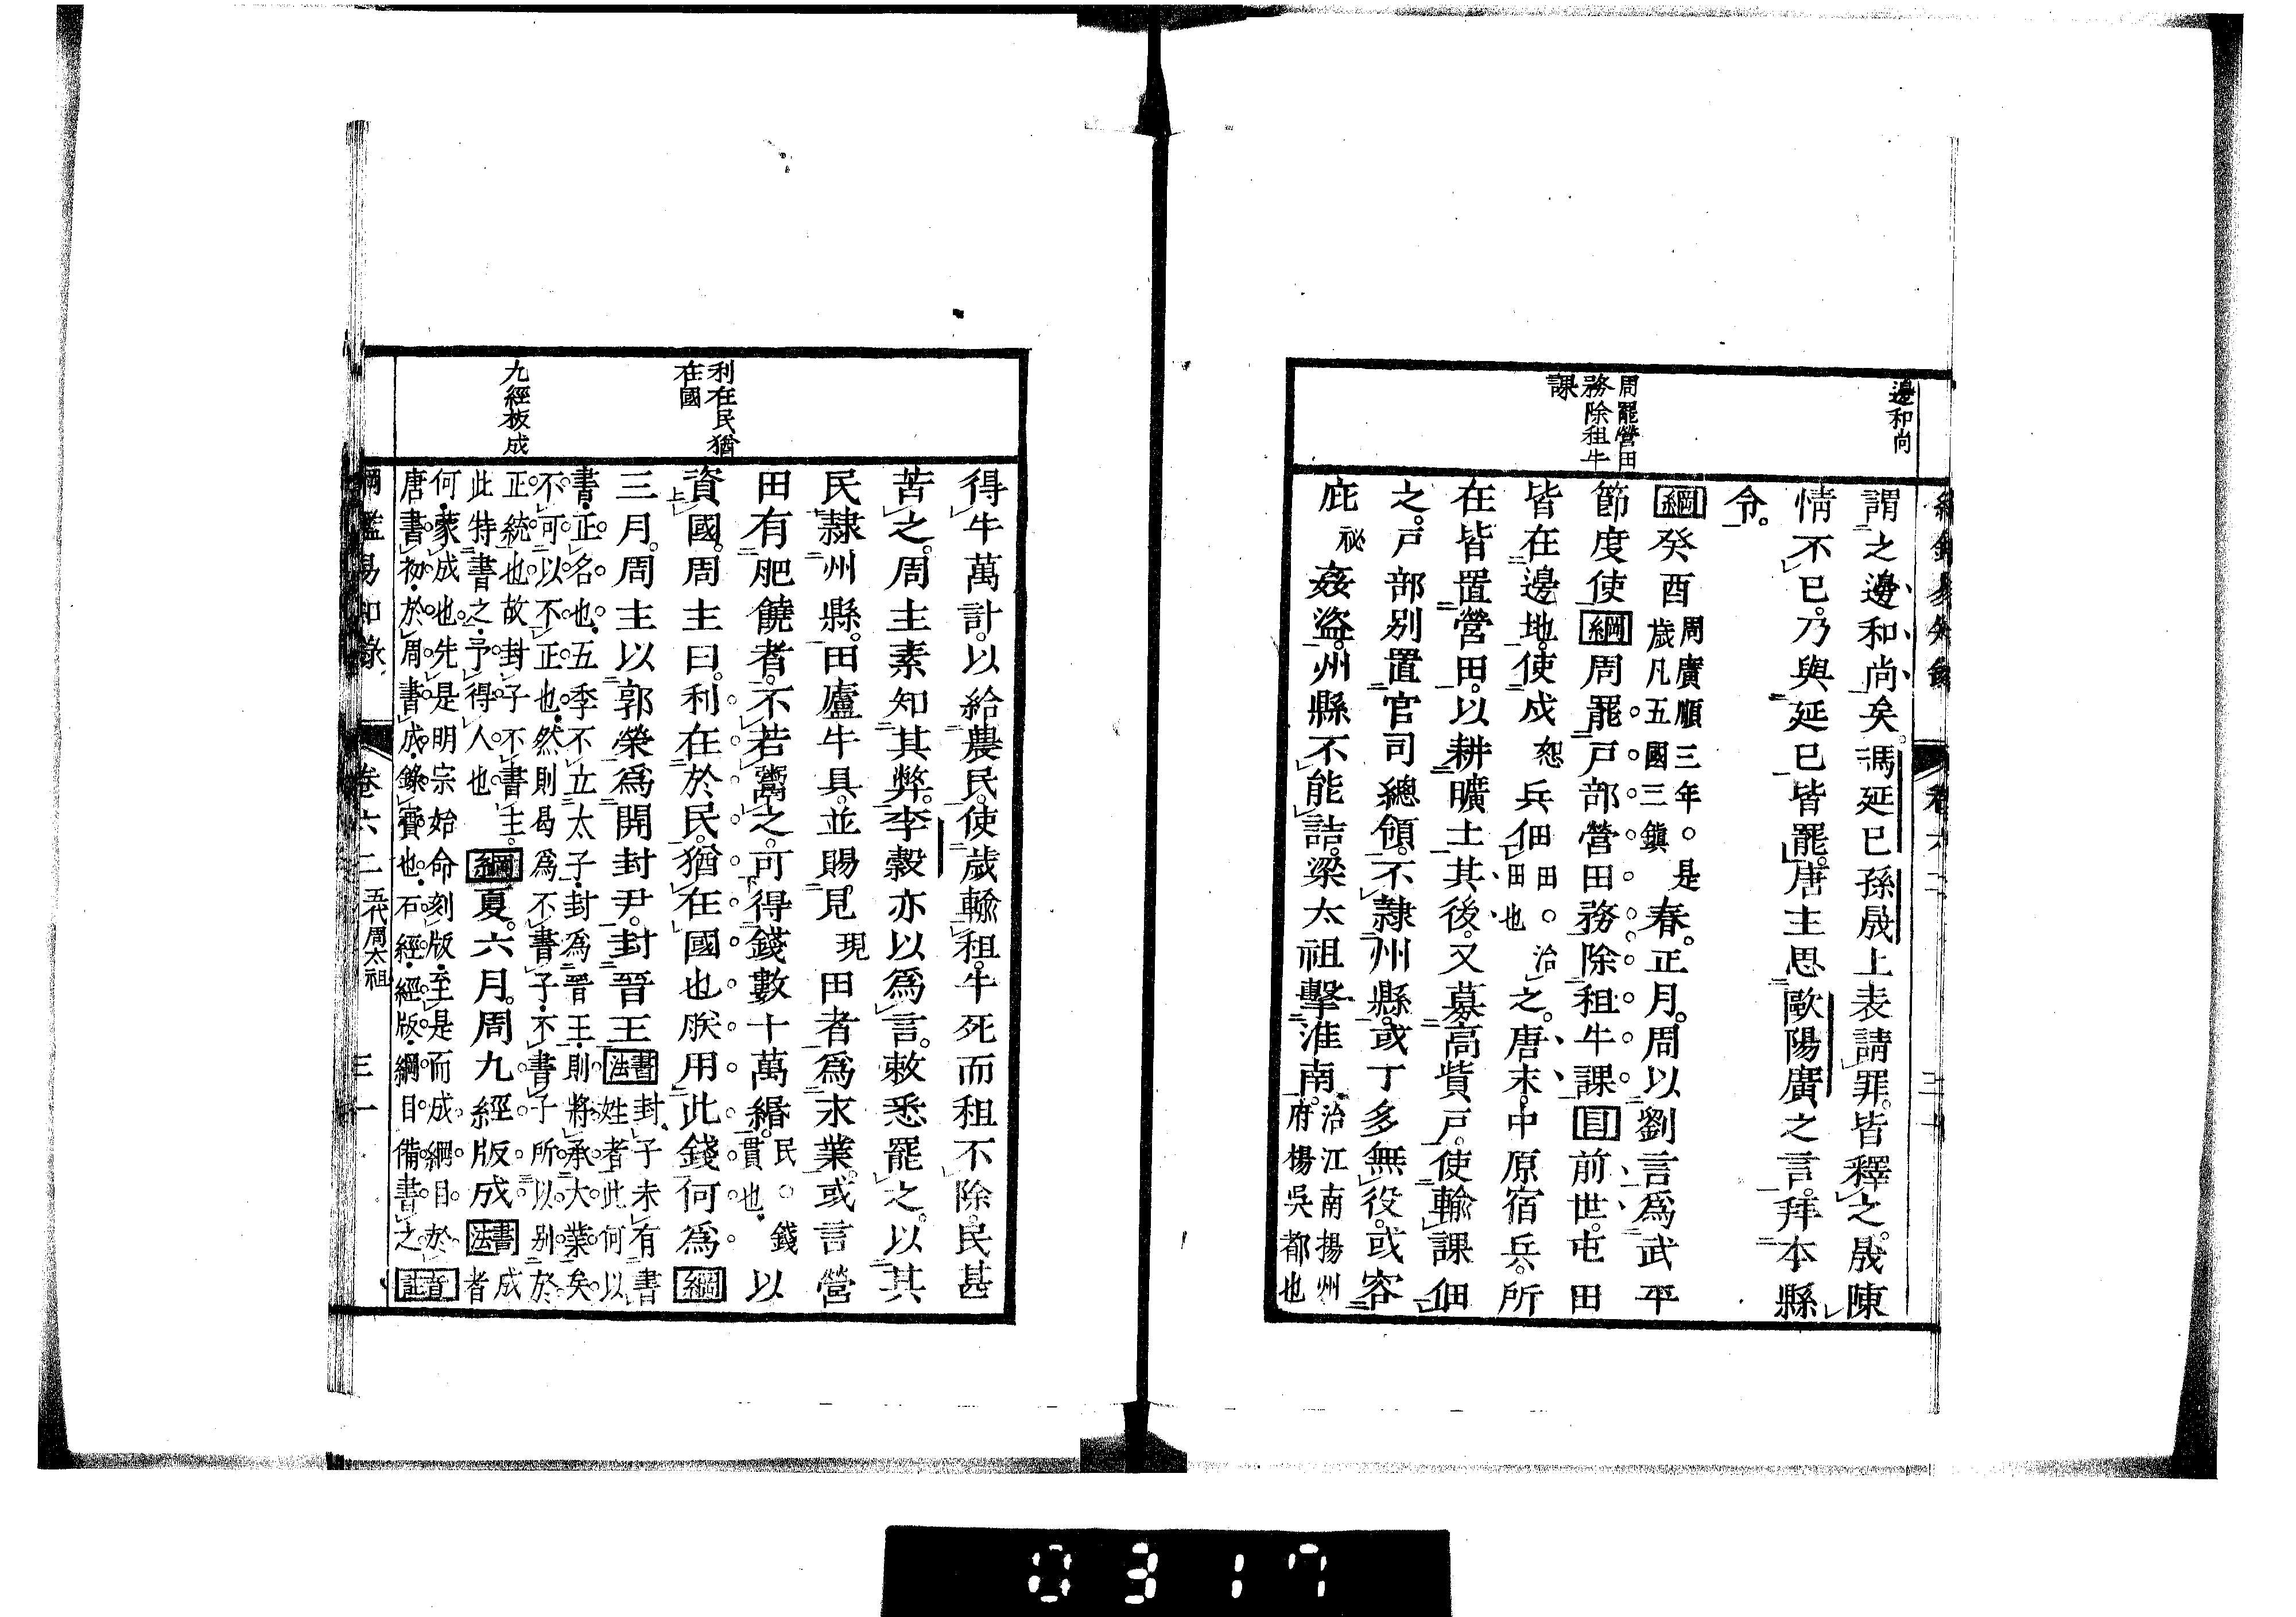 邊和尚
周罷營田
務除租牛
課
謂之邊和尚矣馮延巳孫晟上表請罪皆釋之晟陳
情不已乃與延巳皆罷唐主思歐陽廣之言拜本縣
令
綱癸酉周廣順三年○是歲凡五國三鎮春正月周以劉言爲武平
節度使綱周罷戸部營田務除租牛課目前世屯田
皆在邊地使戍兵佃田○治田也之唐末中原宿兵所
在皆置營田以耕曠土其後又募高貲戸使輸課佃
之戸部別置官司總領不隷州縣或丁多無役或容
庇祕姦盜州縣不能詰梁太祖擊淮南治江南揚州府楊吳都也
利在民猶
在國
九經板成
得牛萬計以給農民使歲輸租牛死而租不除民甚
苦之周主素知其弊李穀亦以爲言敕悉罷之以其
民隷州縣田廬牛具並賜見現田者爲永業或言營
田有肥饒者不若鬻之可得錢數十萬緡民○錢貫也以
資國周主曰利在於民猶在國也朕用此錢何爲綱
三月周主以郭榮爲開封尹封晉王書法封子未有書姓者此何以
書正名也五季不立太子封爲晉王則將承大業矣
不可以不正也然則曷爲不書子不書子所以別於
正統也故封子不書主綱夏六月周九經版成書法成者
此特書之予得人也
何蒙成也先是明宗始命刻版至是而成綱目於
唐書初於周書成錄實也石經經版綱目備書之
綱鑑易知錄 卷六二 五代周太祖 三一
0317